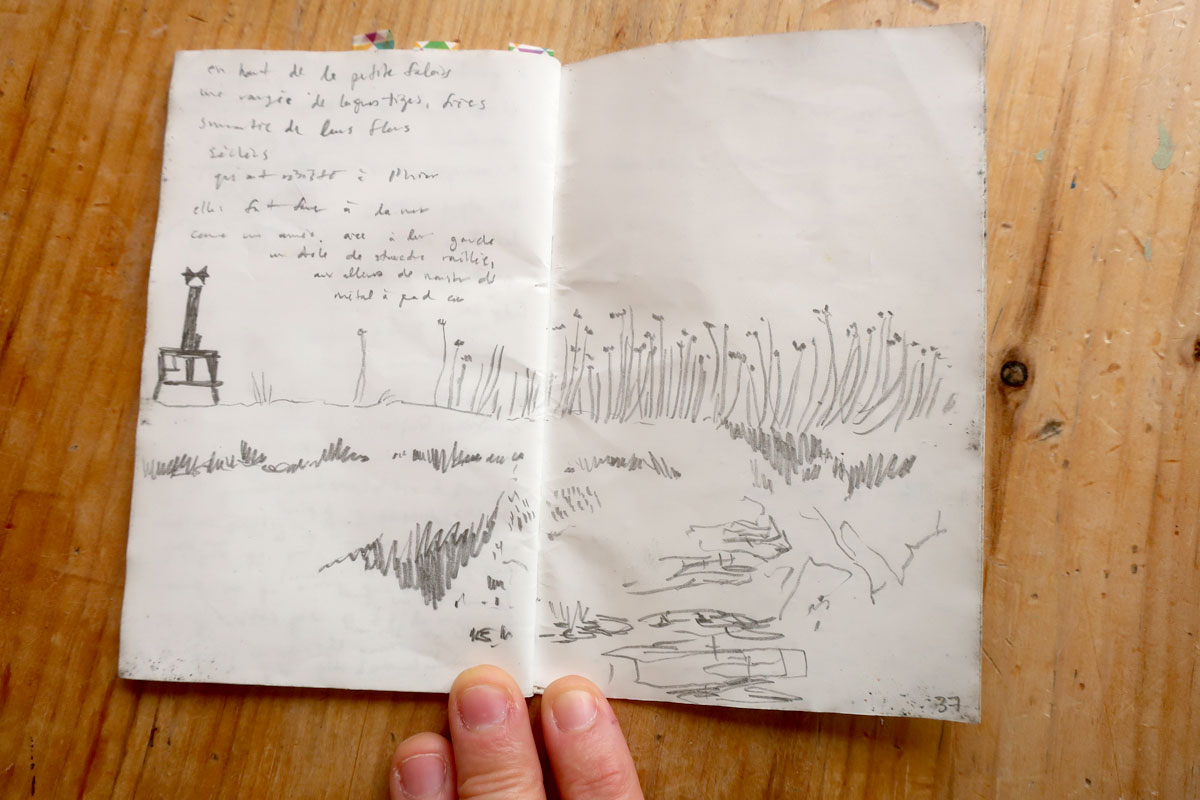 en haut de la petite falaise
une rangée de longues tiges, fines
de leurs fleurs
séchées
qui ont résisté à l'hiver
elles font face à la mer
comme une armée, avec à leur gauche
un drôle de rouillée,
aux allures de de
métal à
37